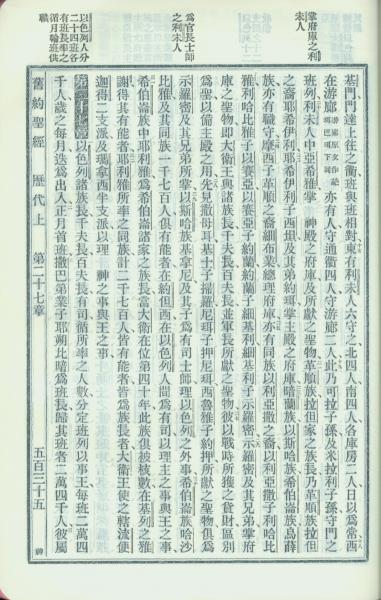 掌府庫之利未人
為官長士師之利未人
以色列人分二十四班各有班長率之循月輪班供職
基門門達上往之衢班與班相對東有利未人六守之北四人南四人各庫房二人日以為常西
在游廊游廊原文作帕珥巴珥下同亦有人守通衢四人守游廊二人此乃可拉子孫及米拉利子孫守門之
班列利未人中亞希雅掌　神殿之府庫及所獻之聖物革順族拉但家之族長乃革順族拉但
之裔耶希伊利耶希伊利子西坦及其弟約珥掌主殿之府庫暗蘭族以斯哈族希伯崙族烏薛
族亦有職守摩西子革順之裔細布業總理府庫亦有同族以利亞撒之裔以利亞撒子利哈比
雅利哈比雅子以賽亞以賽亞子約蘭約蘭子細基利細基利子示羅密示羅密及其兄弟掌府
庫之聖物即大衛王與諸族長千夫長百夫長並軍長所獻之聖物彼以戰時所獲之貨財區別
為聖以備主殿之用先見撒母耳基士子掃羅尼珥子押尼珥西魯雅子約押所獻之聖物俱為
示羅密及其兄弟所掌以斯哈族基拿尼及其子為有司士師理以色列之外事希伯崙族哈沙
比雅及其同族一千七百人俱有能者在約但西在以色列人間為有司以理主之事與王之事
希伯崙族中耶利雅為希伯崙諸家之族長當大衛王在位第四十年此族俱被核數在基列之雅
謝得其有能者耶利雅所率之同族計二千七百人皆有能者皆為族長者大衛王使之轄流便
迦得二支派及瑪拿西半支派以理　神之事與王之事
第二十七章以色列諸族長千夫長百夫長有司循所率之人數分定班列以事王每班二萬四
千人歲之每月迭為出入正月首班撒巴第業子耶朔比暗為班長歸其班者二萬四千人彼屬
舊約聖經　歷代上　第二十七章　五百三十五